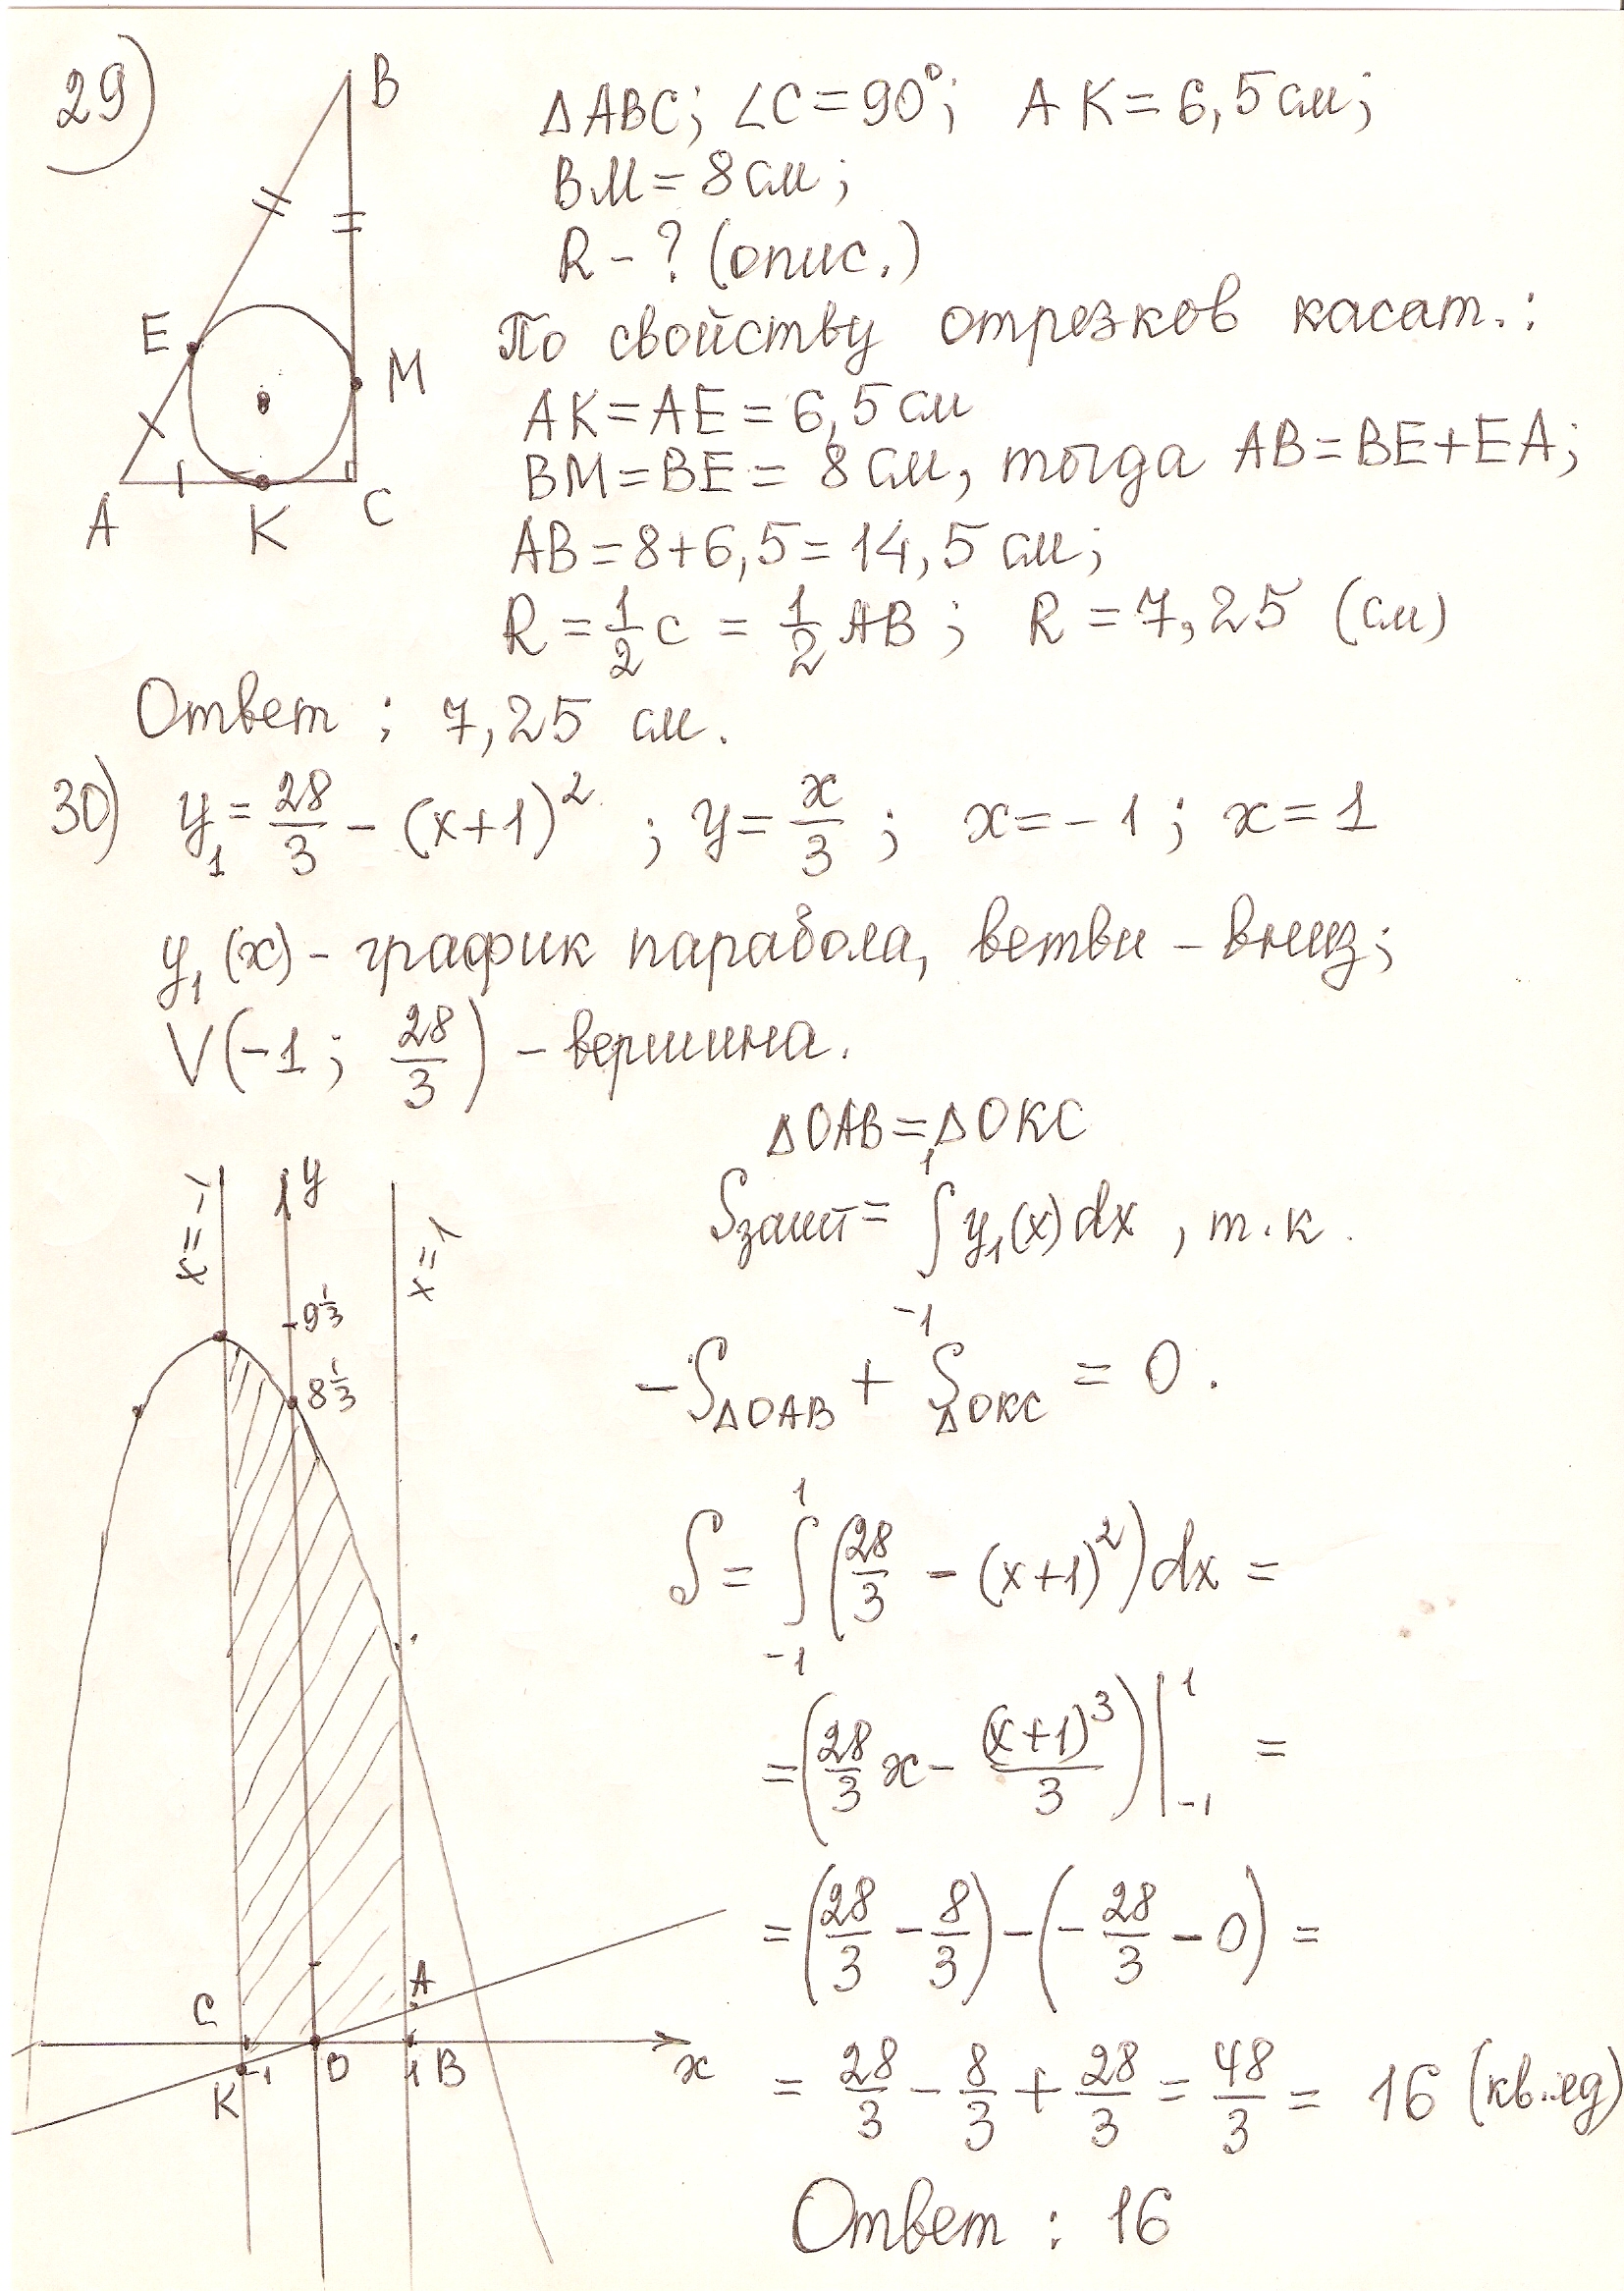 29)
B
E
M
A
K
C
ΔABC; ∠C=90°; AK=6,5см;
BM=8см;
R-? (опис.)
По свойству отрезков касат.:
AK=AE=6,5см
BM=BE=8см, тогда AB=BE+EA;
AB=8+6,5=14,5см;
R=1/2c=1/2AB; R=7,25 (см)
Ответ: 7,25 см.
30) y₁=28/3-(x+1)²; y=x/3; x=-1; x=1
y₁(x)-график парабола, ветви-вниз;
V(-1; 28/3)-вершина.
ΔOAB=ΔOKC
Sзашт=∫₋₁¹y₁(x)dx, т.к.
-SΔOAB+SΔOKC=0.
S=∫₋₁¹(28/3-(x+1)²)dx=
=(28/3x-(x+1)³/3)|₋₁¹=
=(28/3-8/3)-(-28/3-0)=
=28/3-8/3+28/3=48/3=16 (кв.ед)
Ответ: 16
x=-1
y
x=1
9 1/3
8 1/3
C
A
K
-1
O
1
B
x